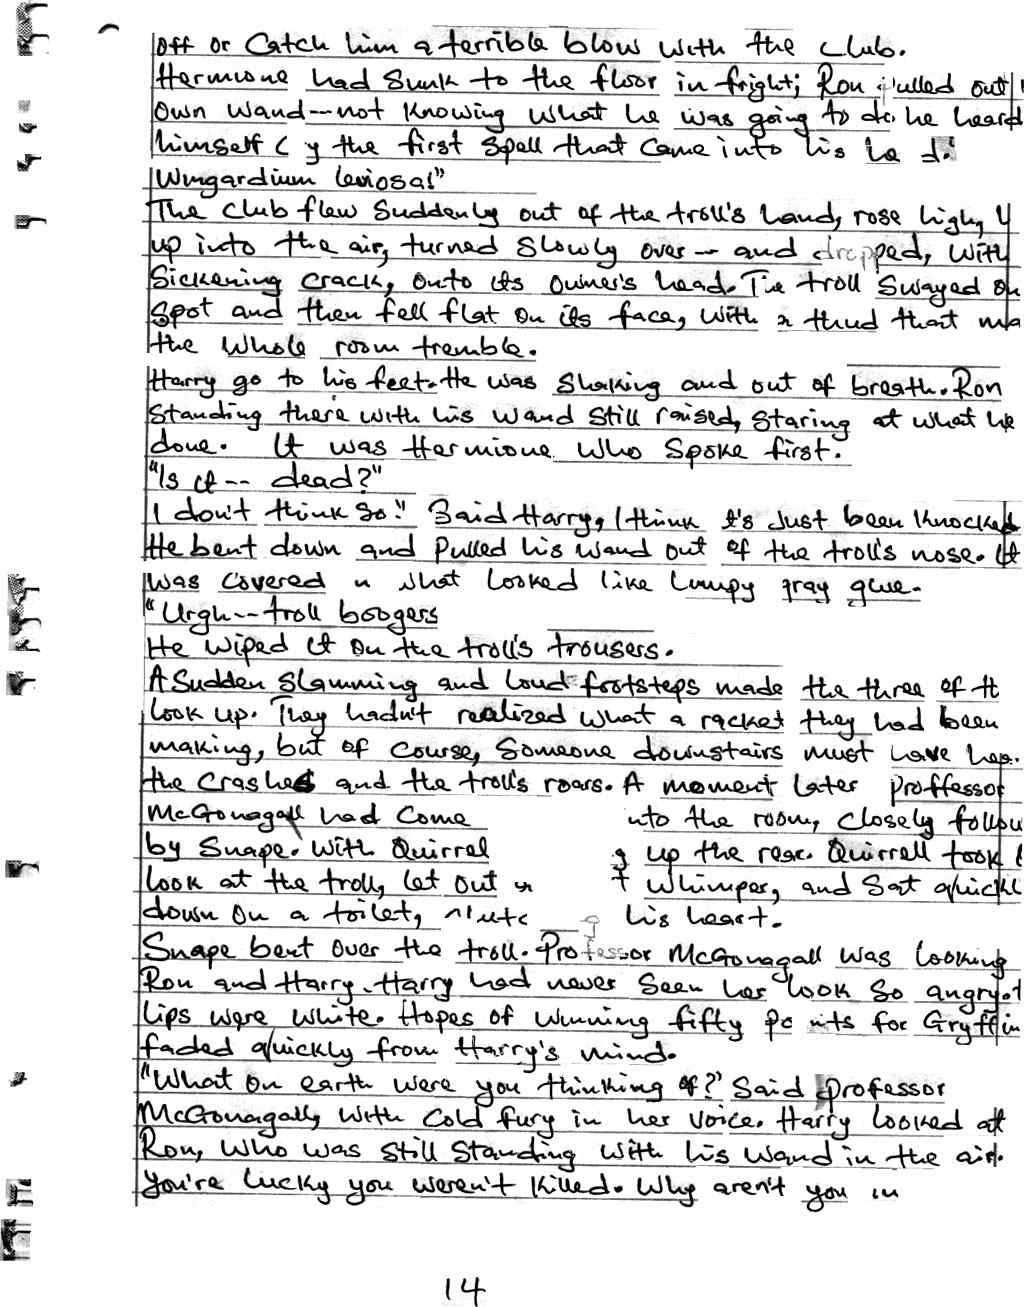 off or Catch him a terrible blow with the club.
Hermione had Sunk to the floor in fright; Ron pulled out
own wand--not knowing what he was going to do he heard
himself the first spell that came into his
Wingardium leviosa!"
The club flew suddenly out of the troll's hand, rose high,
up into the air, turned slowly over -- and dropped, with
Sickening crack, onto its owner's head. The troll swayed on
Spot and then fell flat on its face, with a thud that
the whole room tremble.
Harry go to his feet. He was shaking and out of breath. Ron
Standing there with his wand still raised, staring at what he
done. It was Hermione who spoke first.
"Is it -- dead?"
I don't think so." Said Harry, I think it's Just been knocked
He bent down and pulled his wand out of the troll's nose. It
was covered what looked like lumpy gray glue.
"Urgh--troll boogers
He wiped it on the troll's trousers.
A Sudden Slamming and loud footsteps made the three of
look up. They hadn't realized what a racket they had been
making, but of course, Someone downstairs must have
the crashes and the troll's roars. A moment later proffessor
McGonagall had Come into the room, closely
by Snape. With Quirrel up the rear. Quirrell took
look at the troll, let out whimper, and Sat
down on a toilet, his heart.
Snape bent over the troll. Professor McGonagall was looking
Ron and Harry. Harry had never Seen her look So angry.
lips were white. Hopes of winning fifty points for
faded quickly from Harry's mind.
"What on earth were you thinking of?" Said professor
McGonagall, with Cold fury in her voice. Harry looked at
Ron, who was still standing with his wand in the air.
You're lucky you weren't killed. Why aren't you in
14